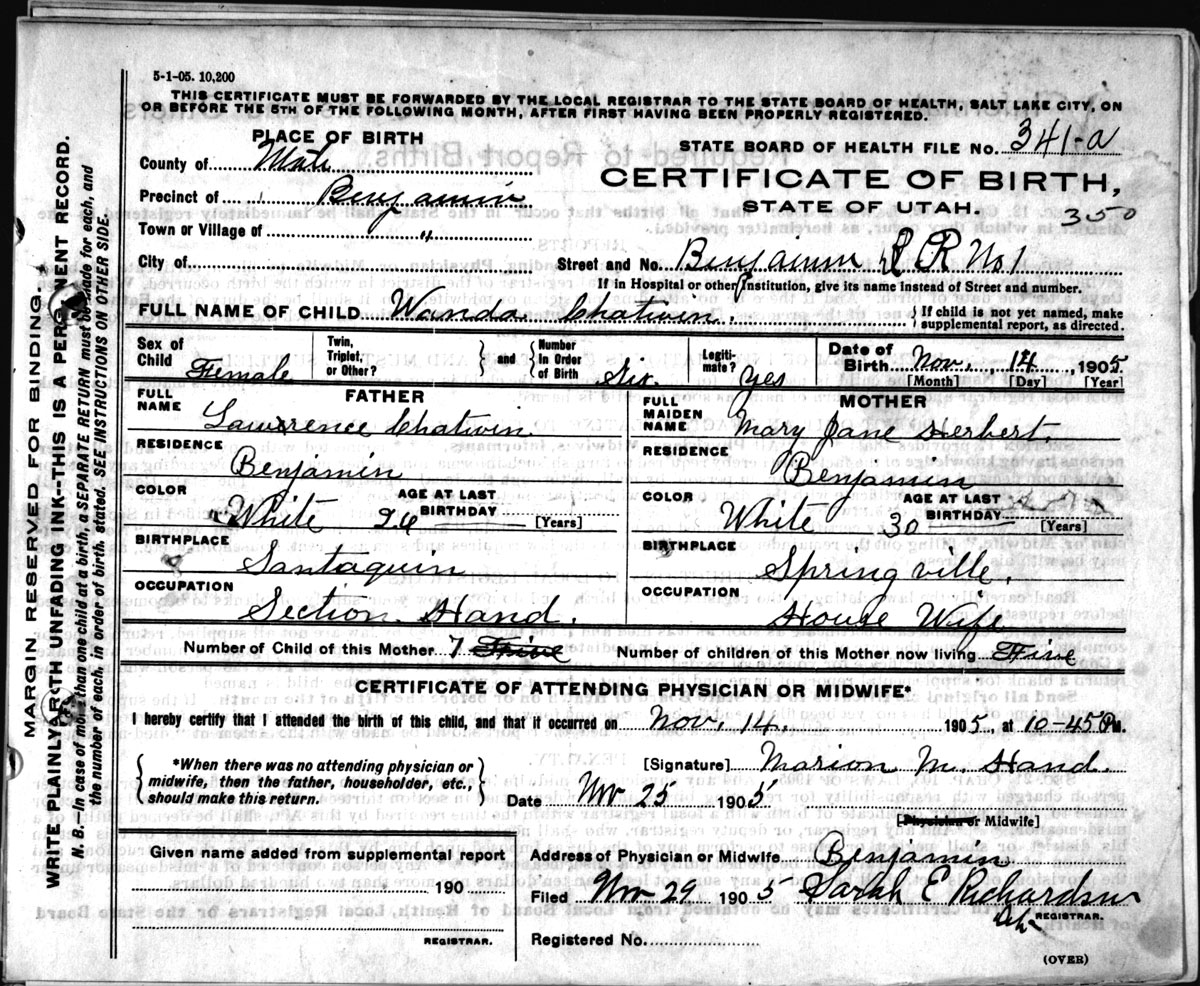 5-1-05. 10,200
THIS CERTIFICATE MUST BE FORWARDED BY THE LOCAL REGISTRAR TO THE STATE BOARD OF HEALTH, SALT LAKE CITY, ON
OR BEFORE THE 5TH OF THE FOLLOWING MONTH, AFTER FIRST HAVING BEEN PROPERLY REGISTERED.
PLACE OF BIRTH
STATE BOARD OF HEALTH FILE No. 341-a
County of Utah
CERTIFICATE OF BIRTH,
Precinct of Benjamin
STATE OF UTAH.
350
Town or Village of "
City of
Street and No. Benjamin R R No 1
If in Hospital or other Institution, give its name instead of Street and number.
FULL NAME OF CHILD Wanda Chatwin
{ If child is not yet named, make
supplemental report, as directed.
Sex of Child Female
Twin, Triplet, or Other?
} and { Number In Order of Birth Six
Legitimate? yes
Date of Birth Nov. 14, 1905
[Month] [Day] [Year]
FATHER
FULL NAME Lawrence Chatwin
RESIDENCE Benjamin
COLOR White
AGE AT LAST BIRTHDAY 26 [Years]
BIRTHPLACE Santaquin
OCCUPATION Section Hand.
MOTHER
FULL MAIDEN NAME Mary Jane Herbert.
RESIDENCE Benjamin
COLOR White
AGE AT LAST BIRTHDAY 30 [Years]
BIRTHPLACE Springville.
OCCUPATION House Wife
Number of Child of this Mother 7 Five
Number of children of this Mother now living Five
CERTIFICATE OF ATTENDING PHYSICIAN OR MIDWIFE*
I hereby certify that I attended the birth of this child, and that it occurred on Nov, 14. 1905, at 10-45 P M.
{ *When there was no attending physician or
midwife, then the father, householder, etc.,
should make this return. }
[Signature] Marion M. Hand.
Date Nov 25 1905.
[Physician or Midwife]
Given name added from supplemental report
190
REGISTRAR.
Address of Physician or Midwife Benjamin
Filed Nov 29 1905 Sarah E Richardson
REGISTRAR.
Registered No.
(OVER)
MARGIN RESERVED FOR BINDING
WRITE PLAINLY WITH UNFADING INK--THIS IS A PERMANENT RECORD.
N. B.--In case of more than one child at a birth, a SEPARATE RETURN must be made for each, and
the number of each, in order of birth, stated. SEE INSTRUCTIONS ON OTHER SIDE.